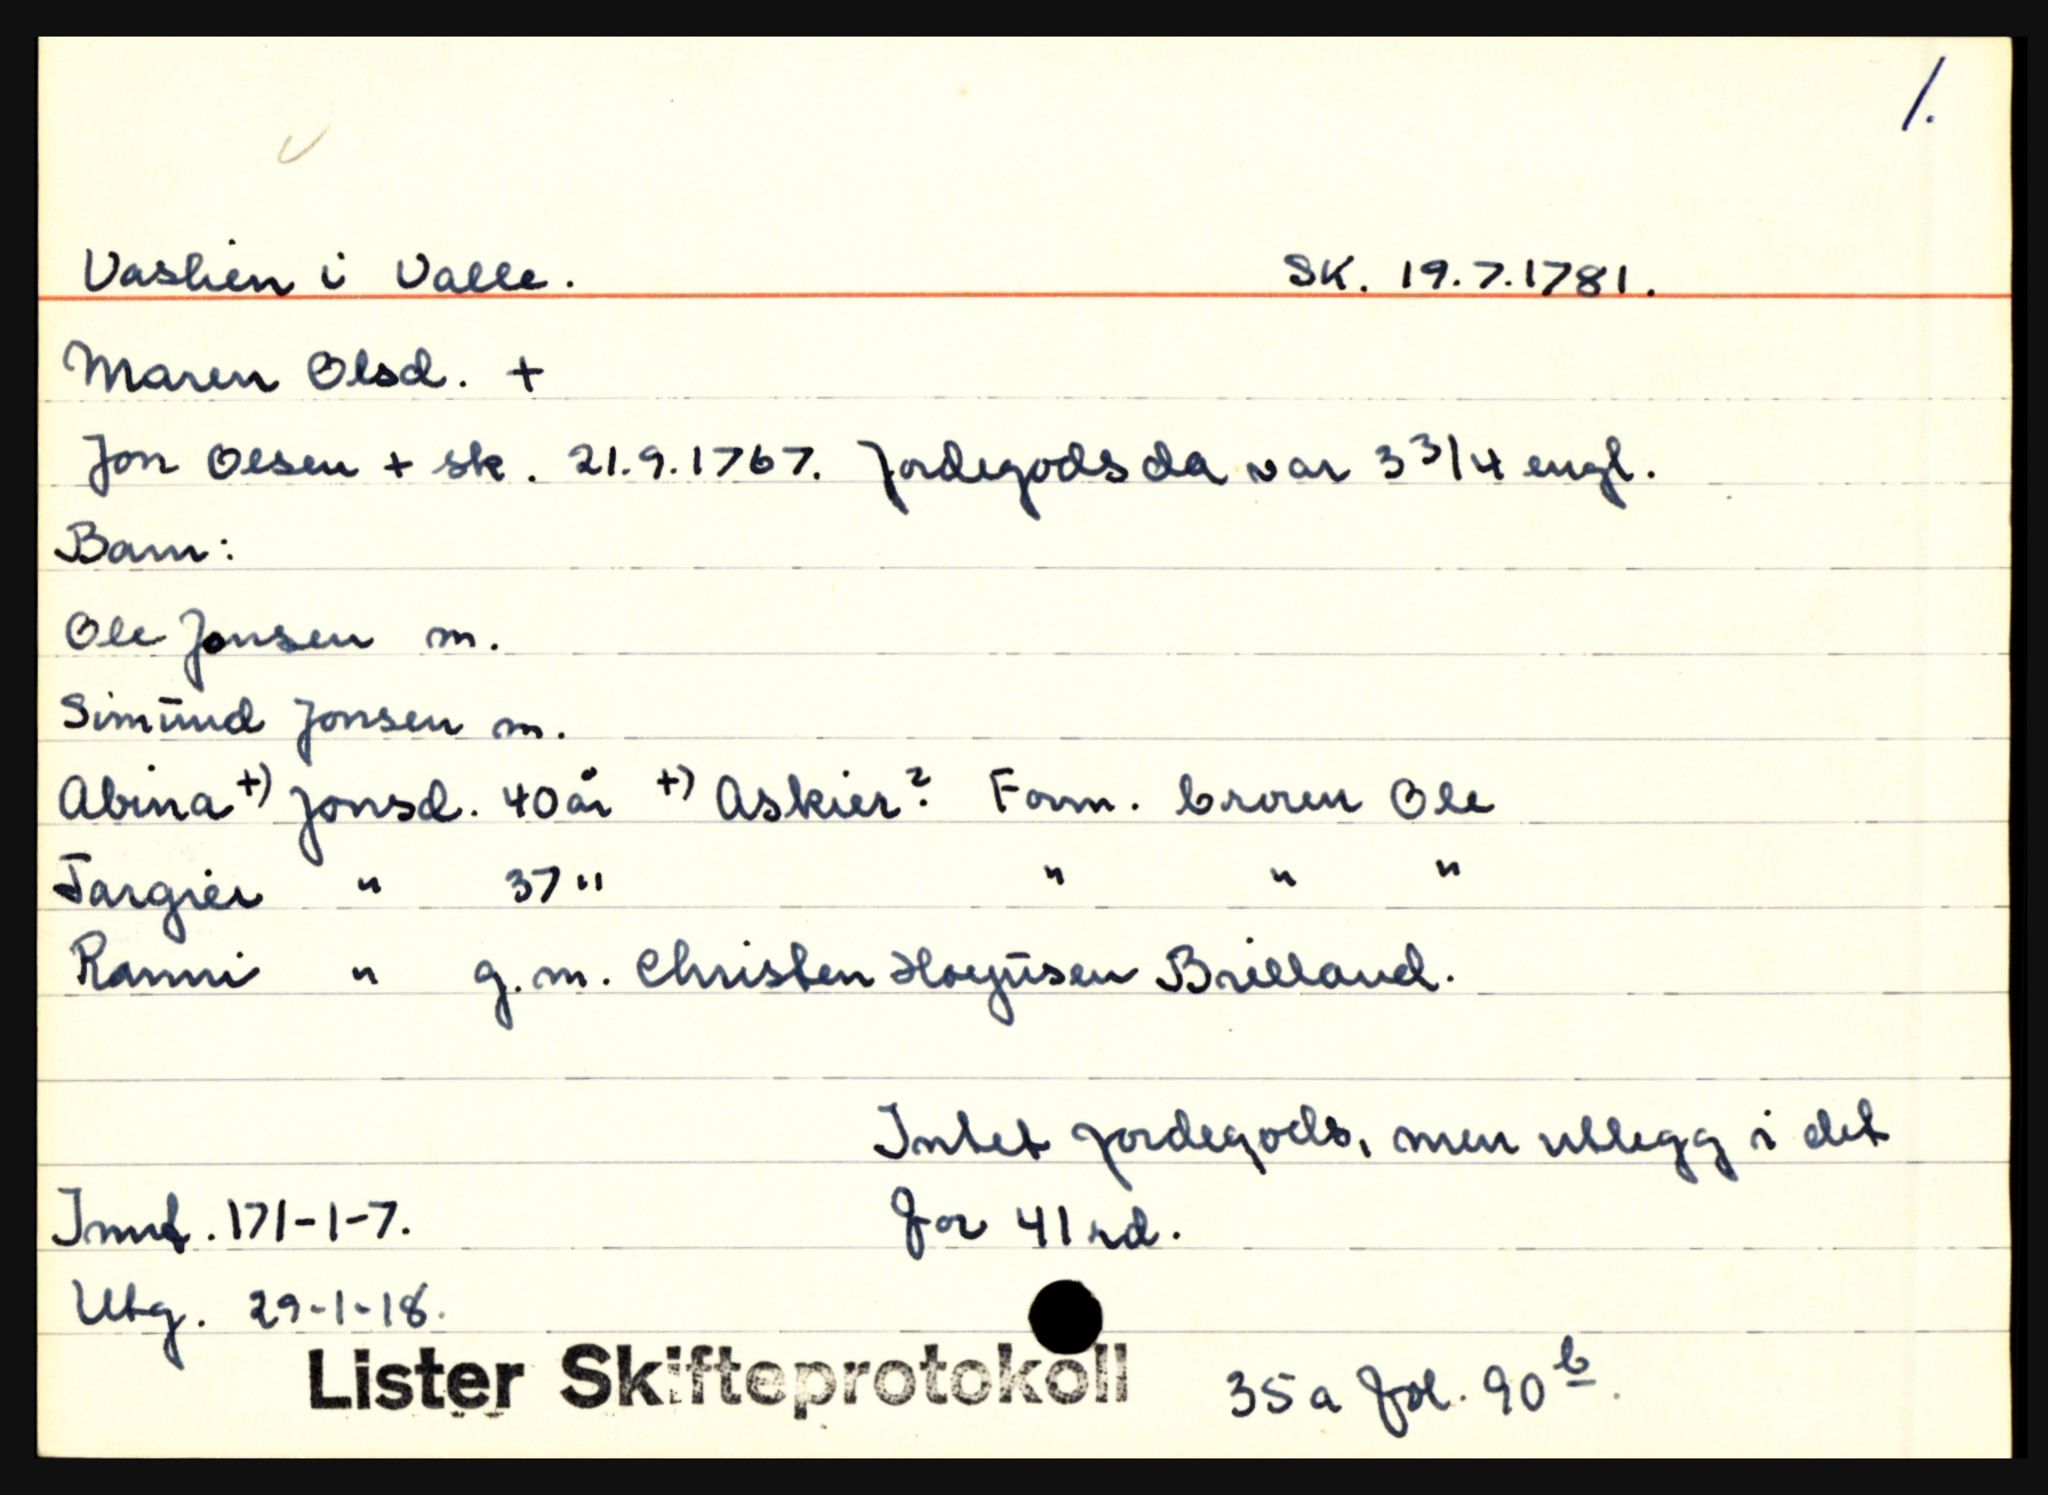 1.
Vaslien i Valle. SK. 19.7.1781.
Maren Olsd. +
Jon Olsen + sk. 21.9.1767. Jordegods da var 3 3/4 engl.
Barn:
Ole Jonsen m.
Simūnd Jonsen m.
Abina +) Jonsd. 40 år +) Askier? Form. broren Ole
Targier " 37 " " " "
Ranni " g.m. Christen Hoyūsen Brelland.
Intet jordegods, men utlegg i det
for 41 rd.
Innt. 171-1-7.
Utg. 29-1-18.
Lister Skifteprotokoll 35a fol. 90 b.